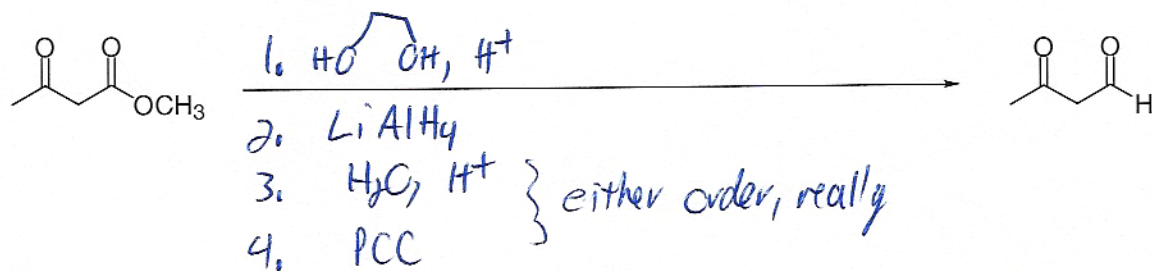 O O OCH3
1. HO OH, H+
2. LiAlH4
3. H2O, H+
4. PCC
} either order, really
O O H